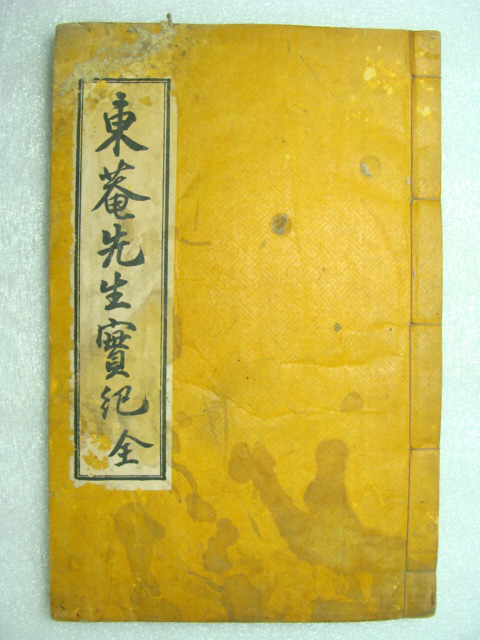 東菴先生實紀 全